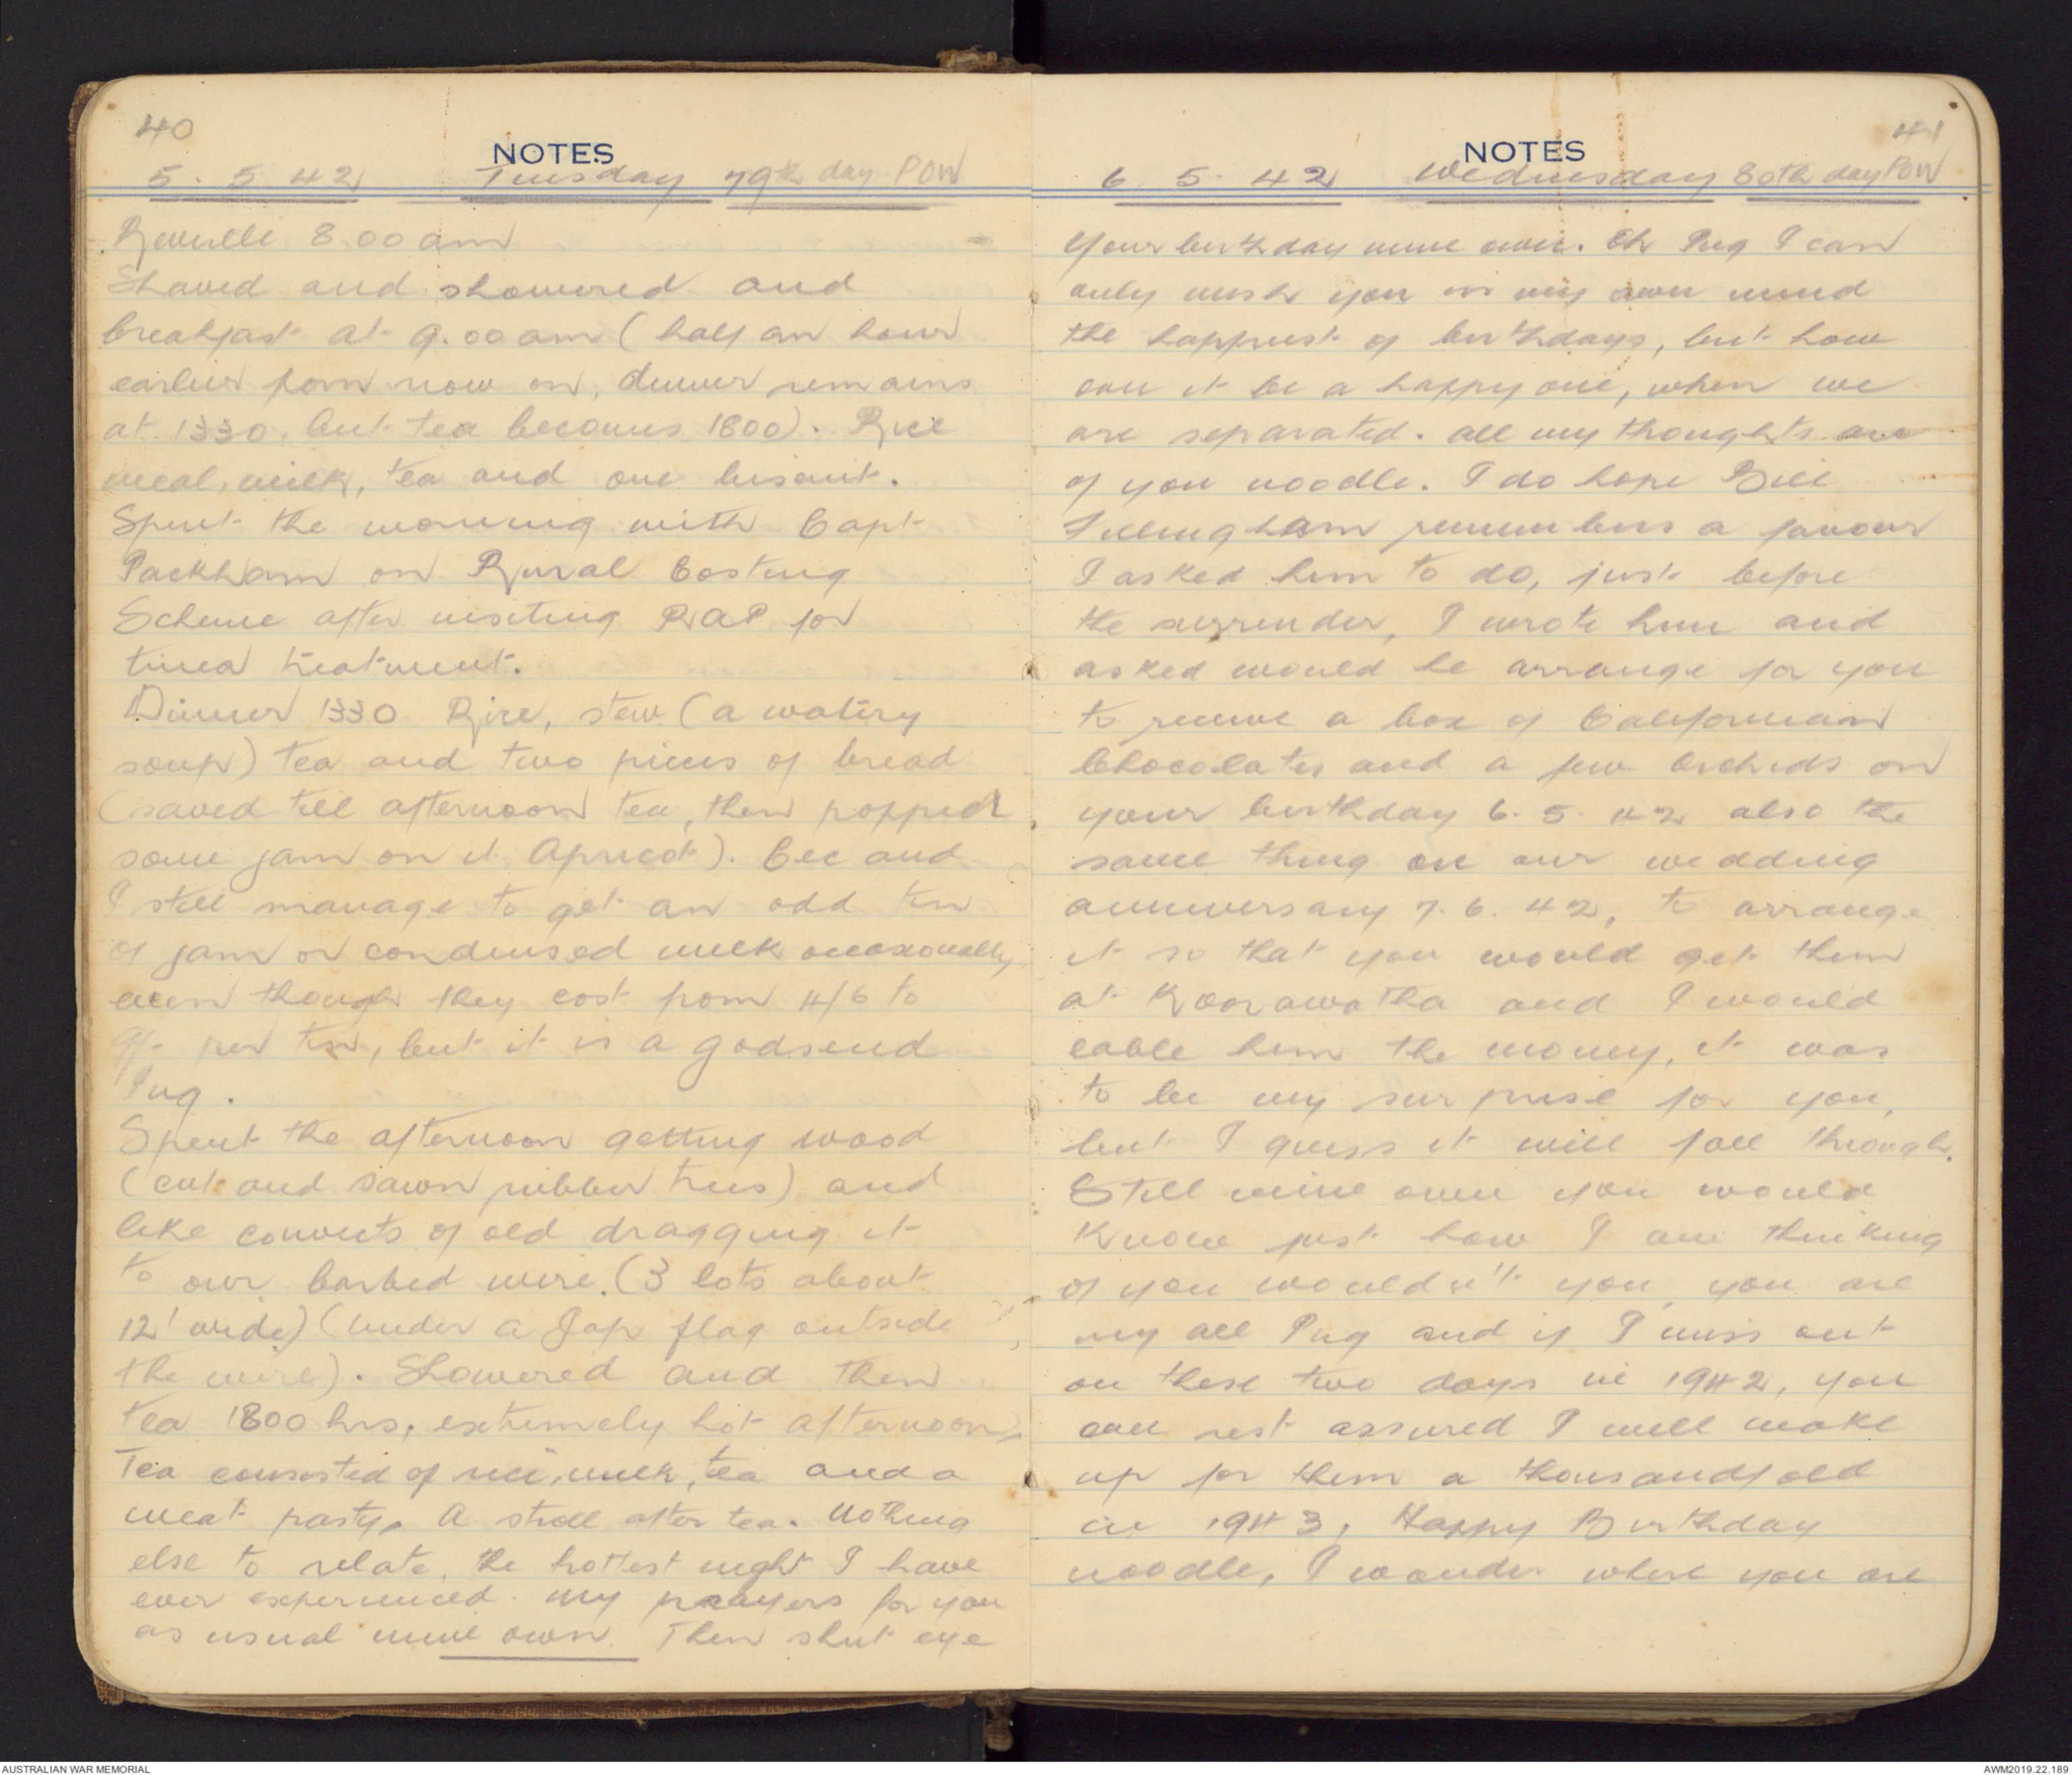 40
NOTES
5. 5. 42 Tuesday 79th day POW
Reveille 8.00 am
Shaved and showered and
breakfast at 9.00 am (half an hour
earlier from now on, dinner remains
at 1330, but tea becomes 1800). Rice
meal, milk, tea and one biscuit.
Spent the morning with Capt
Packham on Rural Costing
Scheme after visiting RAP for
tinea treatment.
Dinner 1330 Rice, stew (a watery
soup) tea and two pieces of bread
(saved till afternoon tea, then popped
some jam on it Apricot). Cec and
I still manage to get an odd tin
of jam or condensed milk occasionally
even though they cost from 4/6 to
9/- per tin, but it is a godsend
Pug.
Spent the afternoon getting wood
(cut and sawn rubber trees) and
like convicts of old dragging it
to our barbed wire. (3 lots about
12' wide) (under a Jap flag outside
the wire). Showered and then
tea 1800 hrs, extremely hot afternoon,
Tea consisted of rice, milk, tea and a
meat pasty. A stroll after tea. Nothing
else to relate, the hottest night I have
ever experienced. My prayers for you
as usual mine own. Then shut eye
41
NOTES
6. 5. 42 Wednesday 80th day POW
Your birthday mine own. Oh Pug I can
only wish you in my own mind
the happiest of birthdays, but how
can it be a happy one, when we
are separated. All my thoughts are
of you noodle. I do hope Bill
remembers a favour
I asked him to do, just before
the surrender, I wrote him and
asked would he arrange for you
to receive a box of Californian
Chocolates and a few Orchids on
your birthday 6. 5. 42 also the
same thing on our wedding
anniversary 7. 6. 42, to arrange
it so that you would get them
at Koorawatha and I would
cable him the money, it was
to be my surprise for you,
but I guess it will fall through.
Still mine own you would
know just how I am thinking
of you wouldn't you, you are
my all Pug and if I miss out
on these two days in 1942, you
can rest assured I will make
up for them a thousandfold
in 1943, Happy Birthday
noodle, I wonder where you are
AUSTRALIAN WAR MEMORIAL
AWM2019.22.189